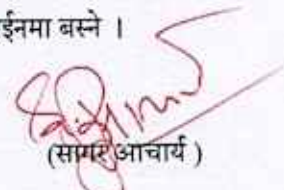 ईनमा बस्ने ।
(सागर आचार्य )